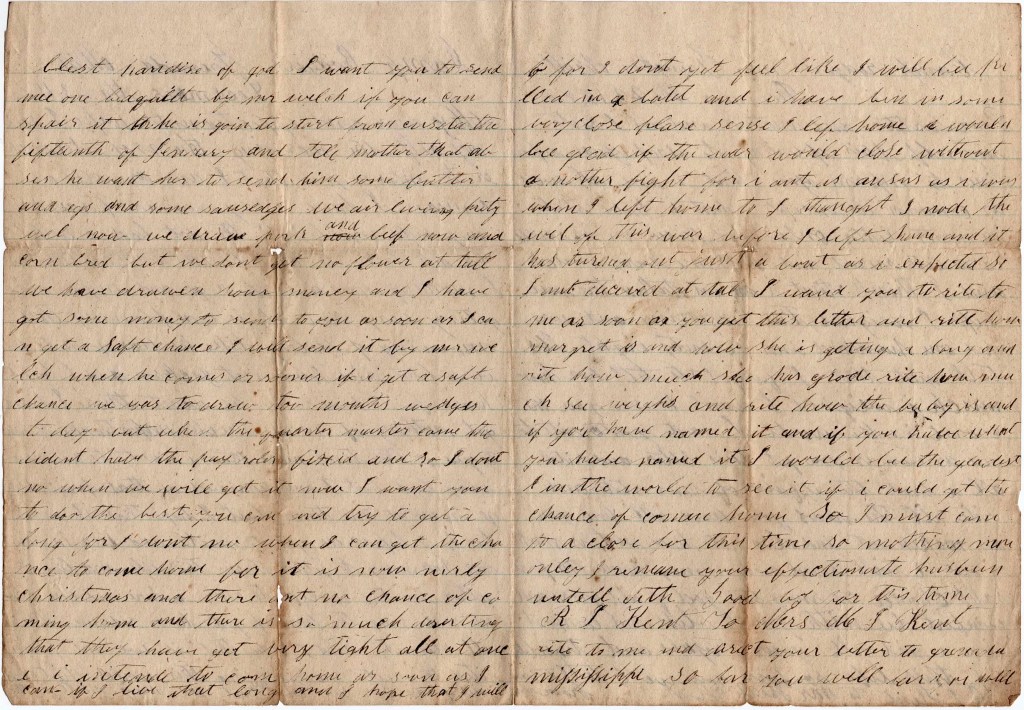 blest paridise of god I want you to send
mee one bedquilt by mr welch if you can
spair it he is goin to start from
fifteenth of Jenuery and tell mother that
he want her to send him some butter
and egs and some sausedges we air living prity
wel now we draw pork and beef now and
corn bred but we dont get no flower at tall
we have drawen sour money and I have
got some money to send to you as soon as I ca
n get a saft chance I will send it by mr we
lch when he comes or sooner if i get a saft
chance we was to draw too months wedges
to day but when the quarter master came the
dident have the pay roles fixeid and so I dont
no when we will get it now I want you
to doo the best you can and try to get a
long for I dont no when I can get the cha
nce to come home for it is now nerly
christmas and there ant no chance of co
ming home and there is so much deserting
that they have got very tight all at onc
e i intend to come home as soon as I
can if I live that long and I hope that I will
for I dont yet feel like I will bee ki
lled in a batel and i have ben in som
very close plase sense I lef home I would
bee glad if the war would close without
a nother fight for i ant as ansus as i was
when I left home to I thought I node the
wel of this war before I left home and it
has turned out just a bout as i expected so
I ant deceived at tall I want you to rite to
me as soon as you get this letter and rite how
margret is and how she is geting a long and
rite how much she has grode rite how mu
ch see weighs and rite how the baby is and
if you have named it and if you have what
you have named it I would bee the gladest
in the world to see it if i could get the
chance of comeing home So I must com
to a close for this time so mothing more
onley I remane your effectionate husban
untell deth Good by for this time
R J Kent To Mers M J Kent
rite to me and direct your letter to grenada
mississippi so far you well